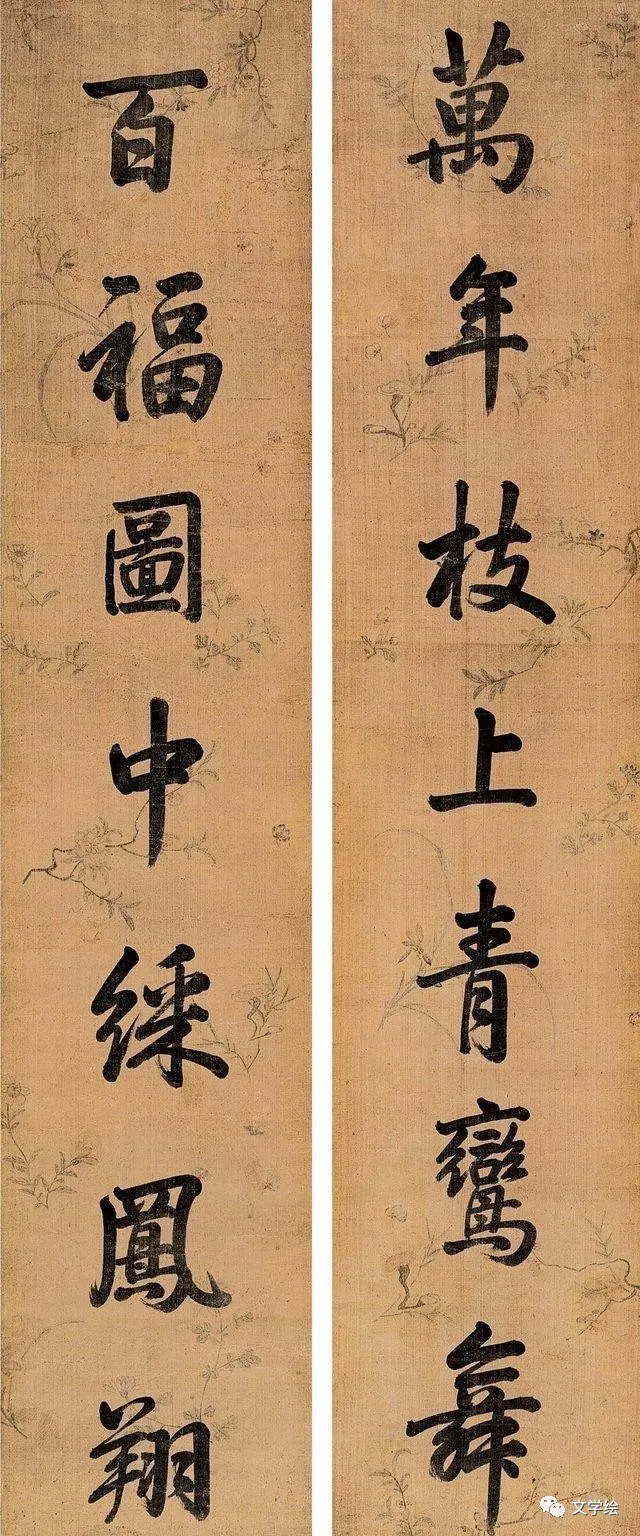 萬年枝上青鸞舞
百福圖中綵鳳翔
文学绘